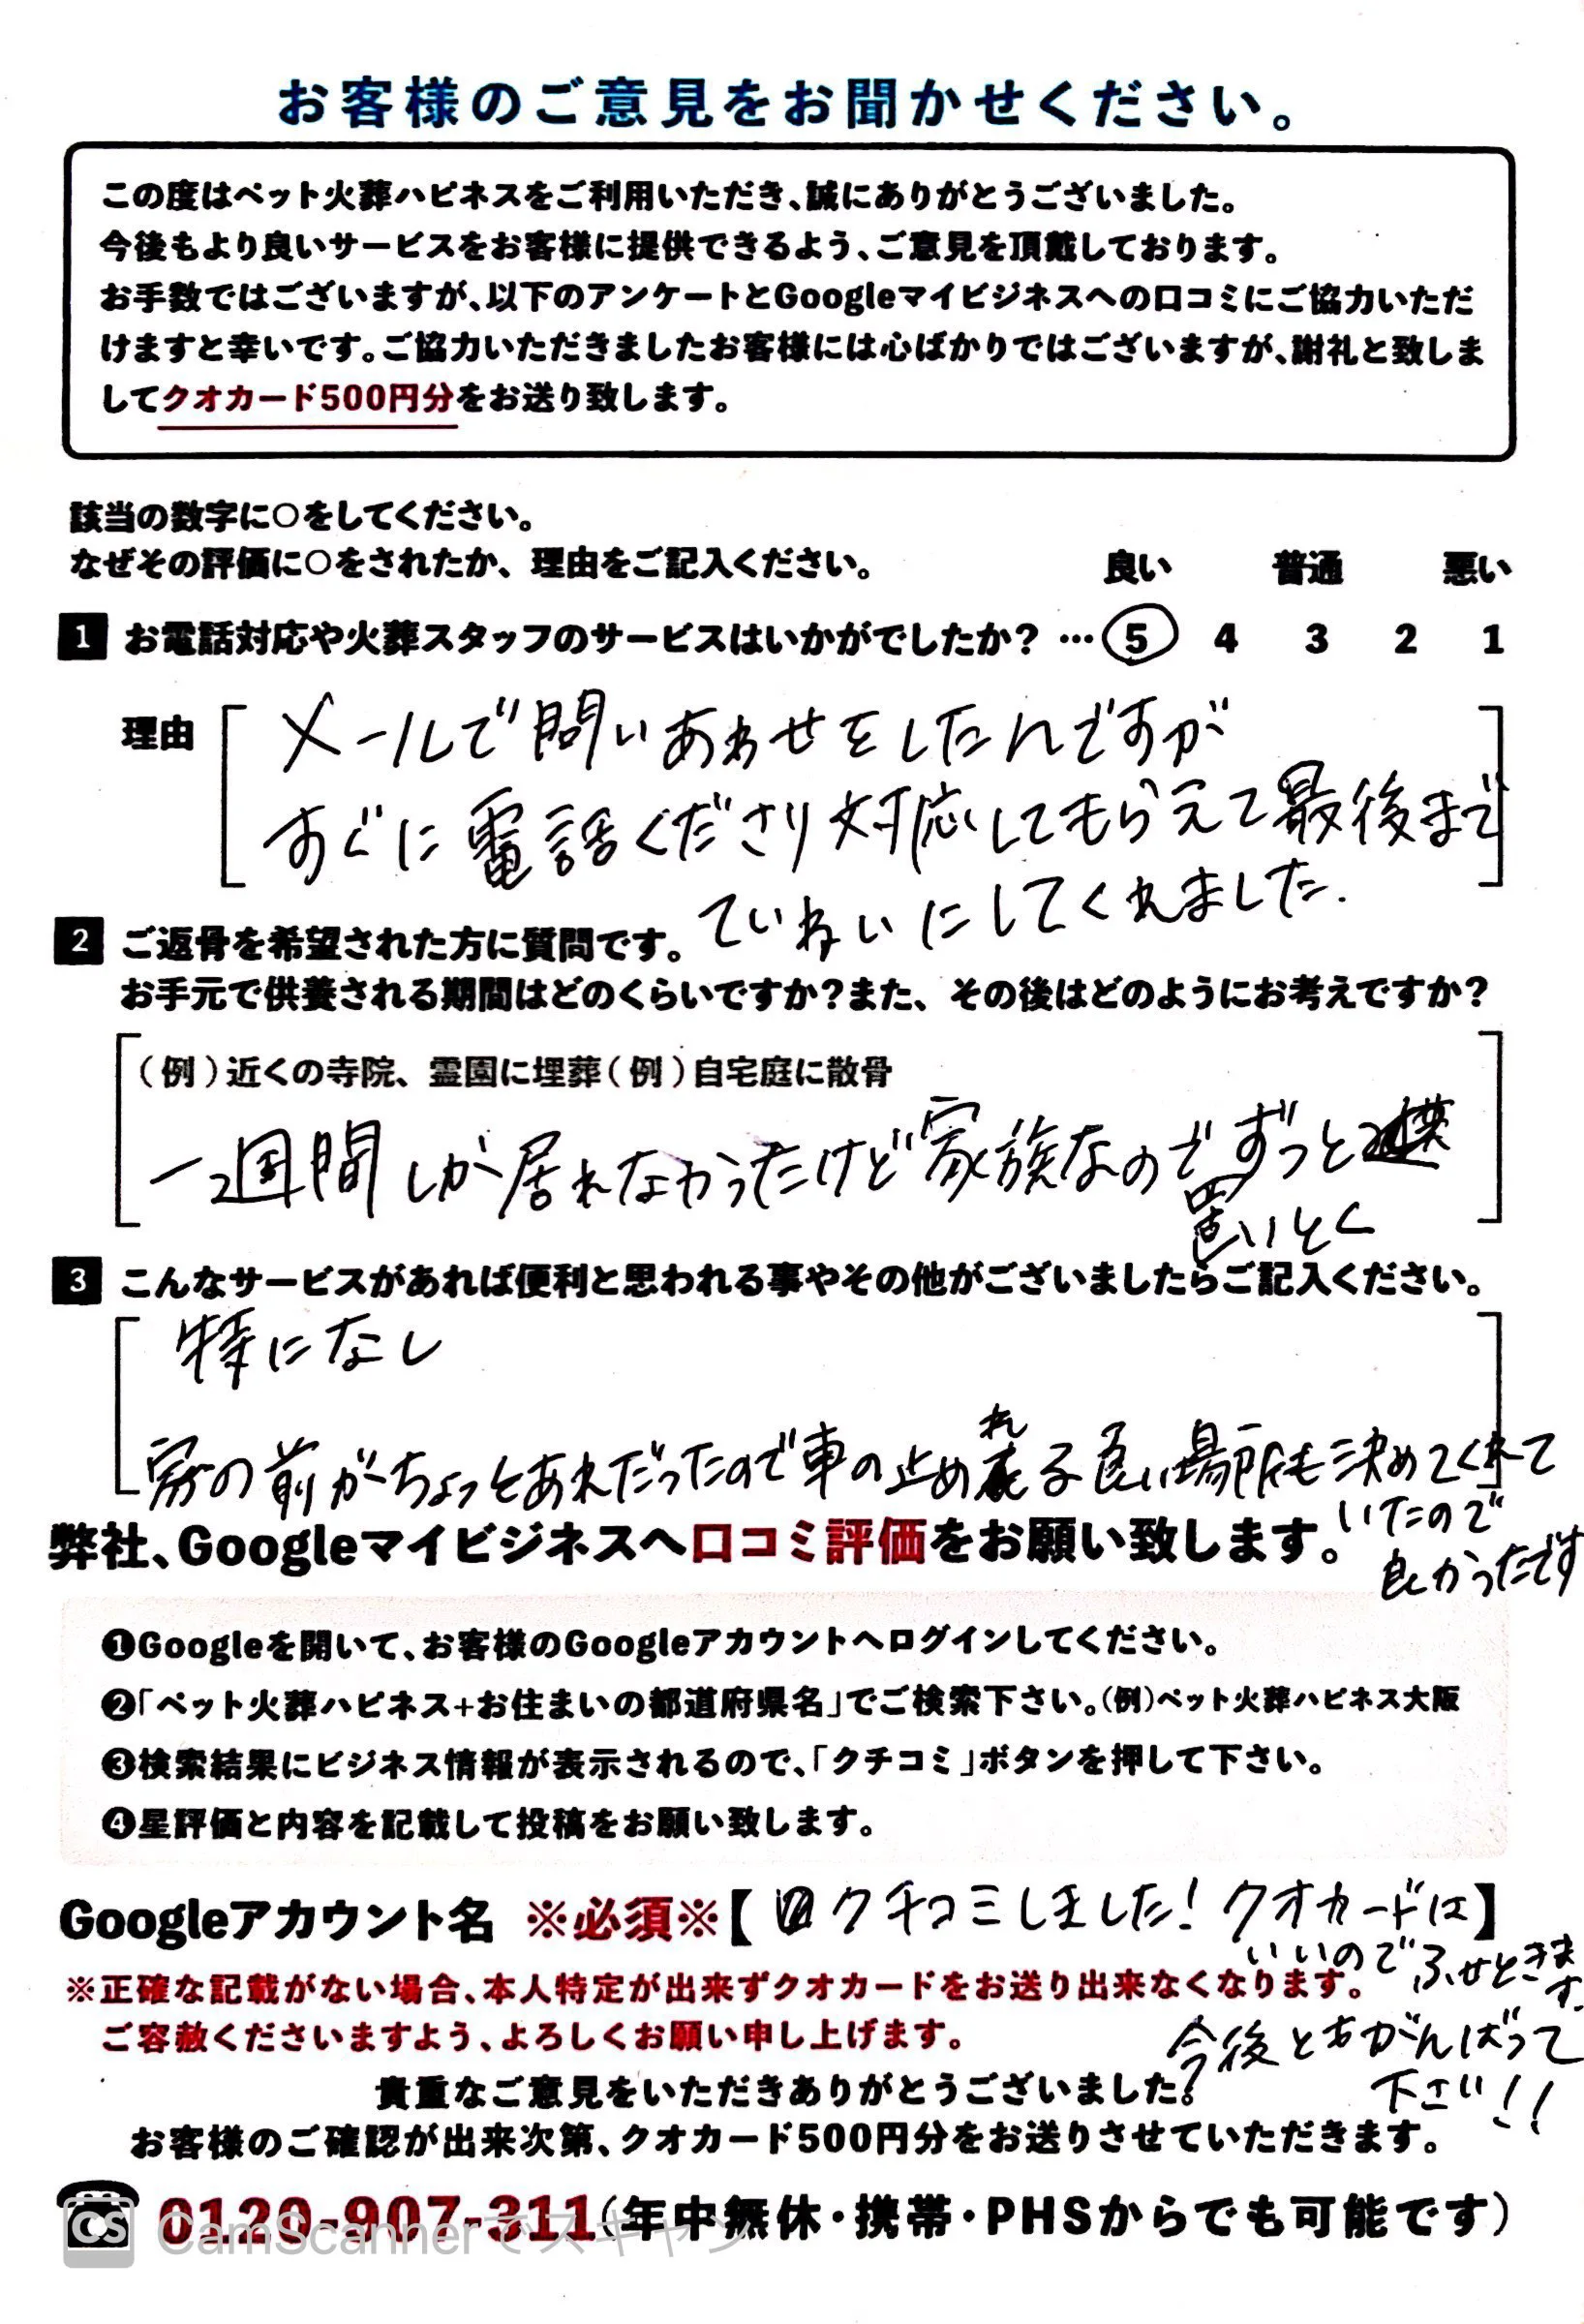 お客様のご意見をお聞かせください。
この度はペット火葬ハピネスをご利用いただき、誠にありがとうございました。
今後もより良いサービスをお客様に提供できるよう、ご意見を頂戴しております。
お手数ではございますが、以下のアンケートとGoogleマイビジネスへの口コミにご協力いただ
けますと幸いです。ご協力いただきましたお客様には心ばかりではございますが、謝礼と致しま
してクオカード500円分をお送り致します。
該当の数字に○をしてください。
なぜその評価に○をされたか、理由をご記入ください。 良い 普通 悪い
1 お電話対応や火葬スタッフのサービスはいかがでしたか？…5 4 3 2 1
理由 メールで問いあわせをしたんですが
すぐに電話くださり対応してもらえて最後まで
ていねいにしてくれました.
2 ご返骨を希望された方に質問です。
お手元で供養される期間はどのくらいですか？また、その後はどのようにお考えですか？
(例)近くの寺院、霊園に埋葬(例)自宅庭に散骨
一週間しか居れなかったけど家族なのでずっと
置いとく
3 こんなサービスがあれば便利と思われる事やその他がございましたらご記入ください。
特になし
家の前がちょっとあれだったので車の止めれる良い場所も決めてくれて
いたので
良かったです
弊社、Googleマイビジネスへ口コミ評価をお願い致します。
❶Googleを開いて、お客様のGoogleアカウントへログインしてください。
❷「ペット火葬ハピネス+お住まいの都道府県名」でご検索下さい。(例)ペット火葬ハピネス大阪
❸検索結果にビジネス情報が表示されるので、「クチコミ」ボタンを押して下さい。
❹星評価と内容を記載して投稿をお願い致します。
Googleアカウント名 ※必須※【クチコミしました！クオカードは】
いいのでふせときます.
※正確な記載がない場合、本人特定が出来ずクオカードをお送り出来なくなります。
ご容赦くださいますよう、よろしくお願い申し上げます。
今後ともがんばって
下さい!!
貴重なご意見をいただきありがとうございました。
お客様のご確認が出来次第、クオカード500円分をお送りさせていただきます。
0120-907-311(年中無休・携帯・PHSからでも可能です)
CS CamScannerでスキャン